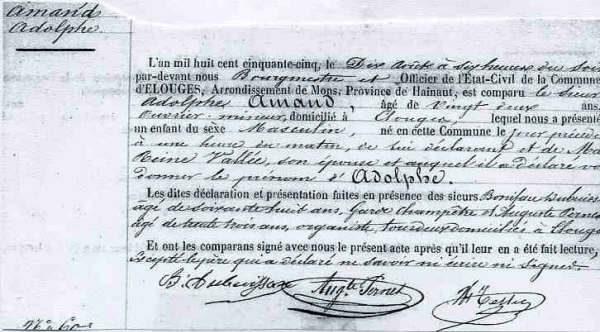 Amand
Adolphe.
L'an mil huit cent cinquante-cinq, le Dix Août à six heures du soir
par-devant nous Bourgmestre et Officier de l'État-Civil de la Commune
d'ELOUGES, Arrondissement de Mons, Province de Hainaut, est comparu le sieur
Adolphe Amand, âgé de vingt deux ans.
Ouvrier mineur, domicilié à Elouges, lequel nous a présenté
un enfant du sexe Masculin, né en cette Commune le jour précéde
à une heure du matin, de lui déclarant et de Ma
Reine Vallée, son épouse et auquel il a déclaré vo
donner le prénom d'Adolphe.
Les dites déclaration et présentation faites en présence des sieurs Boniface Dubuisso
âgé de soixante huit ans, Garde Champêtre et Auguste
âgé de trente trois ans, organiste, tous deux domiciliés à Eloug
Et ont les comparans signé avec nous le présent acte après qu'il leur en a été fait lecture,
Excepté le père qui a déclaré ne savoir ni écrire ni signer.
B. Dubuisson Augte